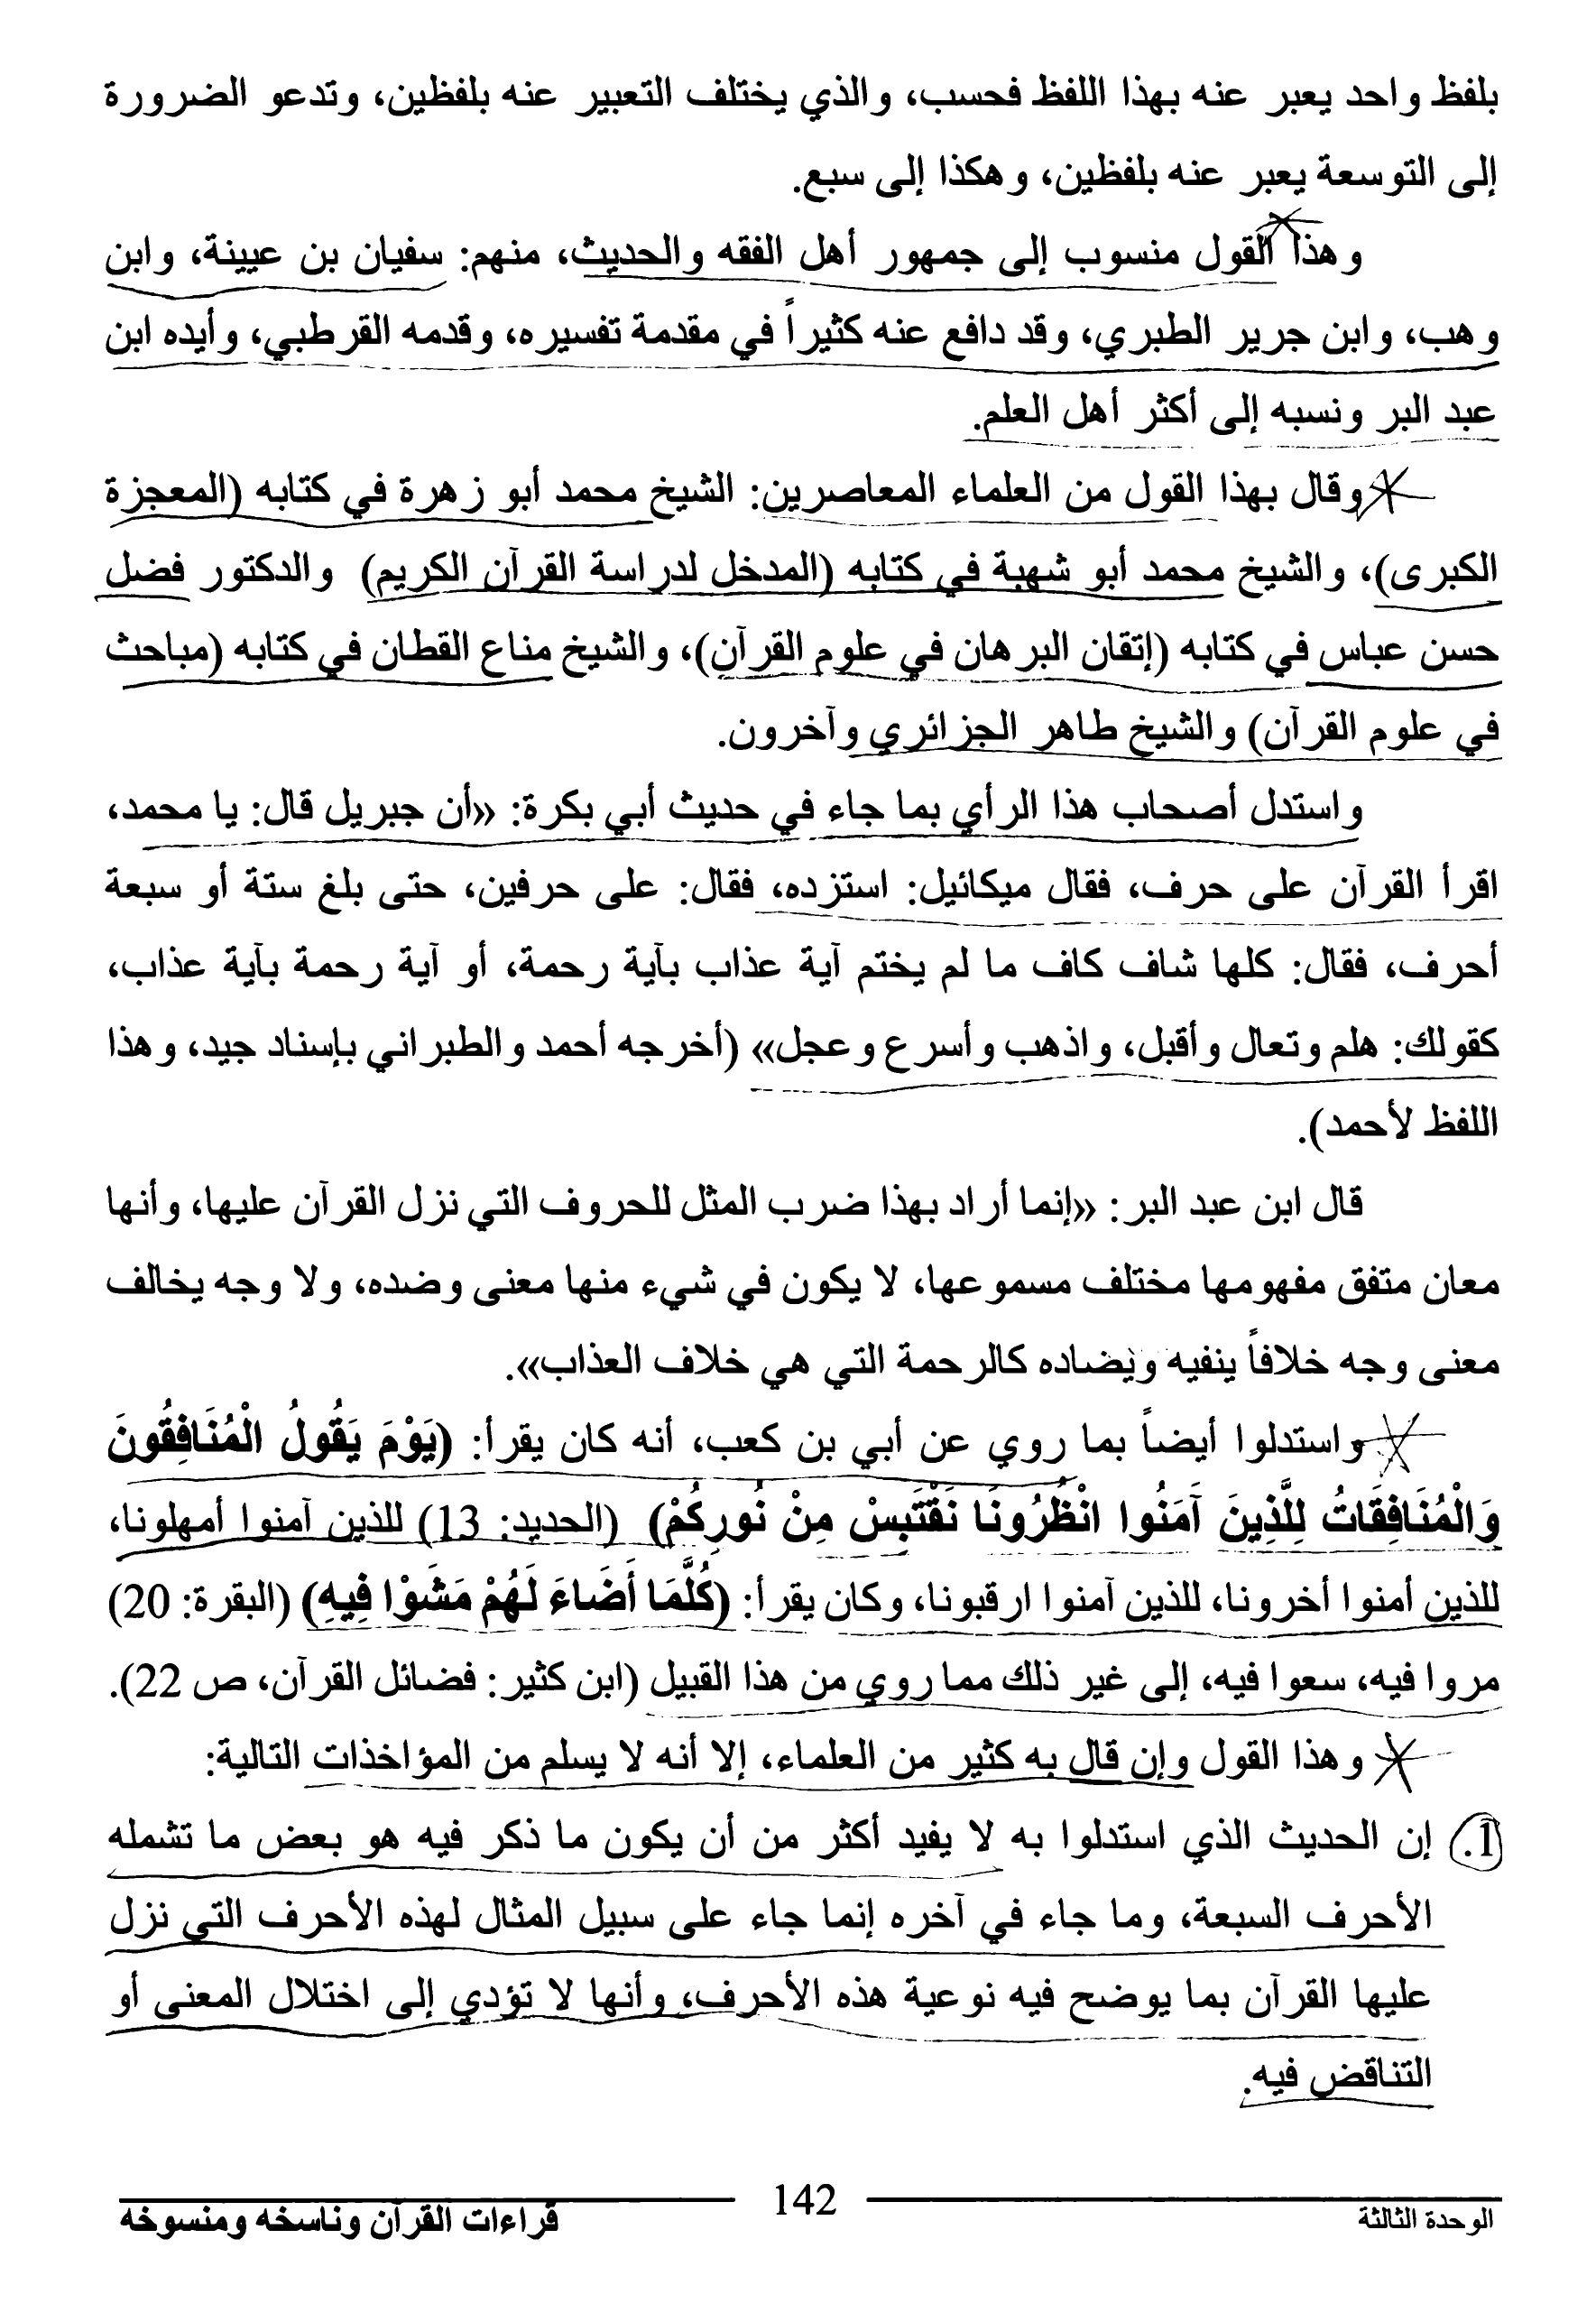 بلفظ واحد يعبر عنه بهذا اللفظ فحسب، والذي يختلف التعبير عنه بلفظين، وتدعو الضرورة
إلى التوسعة يعبر عنه بلفظين، وهكذا إلى سبع.
وهذا القول منسوب إلى جمهور أهل الفقه والحديث، منهم: سفيان بن عيينة، وابن
وهب، وابن جرير الطبري، وقد دافع عنه كثيراً في مقدمة تفسيره، وقدمه القرطبي، وأيده ابن
عبد البر ونسبه إلى أكثر أهل العلم.
وقال بهذا القول من العلماء المعاصرين: الشيخ محمد أبو زهرة في كتابه (المعجزة
الكبرى)، والشيخ محمد أبو شهبة في كتابه (المدخل لدراسة القرآن الكريم) والدكتور فضل
حسن عباس في كتابه (إتقان البرهان في علوم القرآن)، والشيخ مناع القطان في كتابه (مباحث
في علوم القرآن) والشيخ طاهر الجزائري وآخرون.
واستدل أصحاب هذا الرأي بما جاء في حديث أبي بكرة: «أن جبريل قال: يا محمد،
اقرأ القرآن على حرف، فقال ميكائيل: استزده، فقال: على حرفين، حتى بلغ ستة أو سبعة
أحرف، فقال: كلها شاف كاف ما لم يختم آية عذاب بآية رحمة، أو آية رحمة بآية عذاب،
كقولك: هلم وتعال وأقبل، واذهب وأسرع وعجل» (أخرجه أحمد والطبراني بإسناد جيد، وهذا
اللفظ لأحمد).
قال ابن عبد البر: «إنما أراد بهذا ضرب المثل للحروف التي نزل القرآن عليها، وأنها
معان متفق مفهومها مختلف مسموعها، لا يكون في شيء منها معنى وضده، ولا وجه يخالف
معنى وجه خلافاً ينفيه ويضاده كالرحمة التي هي خلاف العذاب».
واستدلوا أيضاً بما روي عن أبي بن كعب، أنه كان يقرأ: (يَوْمَ يَقُولُ الْمُنَافِقُونَ
وَالْمُنَافِقَاتُ لِلَّذِينَ آَمَنُوا انْظُرُونَا نَقْتَبِسْ مِنْ نُورِكُمْ) (الحديد: 13) للذين آمنوا أمهلونا،
للذين أمنوا أخرونا، للذين آمنوا ارقبونا، وكان يقرأ: (كُلَّمَا أَضَاءَ لَهُمْ مَشَوْا فِيهِ) (البقرة: 20)
مروا فيه، سعوا فيه، إلى غير ذلك مما روي من هذا القبيل (ابن كثير: فضائل القرآن، ص 22).
وهذا القول وإن قال به كثير من العلماء، إلا أنه لا يسلم من المؤاخذات التالية:
1. إن الحديث الذي استدلوا به لا يفيد أكثر من أن يكون ما ذكر فيه هو بعض ما تشمله
الأحرف السبعة، وما جاء في آخره إنما جاء على سبيل المثال لهذه الأحرف التي نزل
عليها القرآن بما يوضح فيه نوعية هذه الأحرف، وأنها لا تؤدي إلى اختلال المعنى أو
التناقض فيه.
142
الوحدة الثالثة
قراءات القرآن وناسخه ومنسوخه